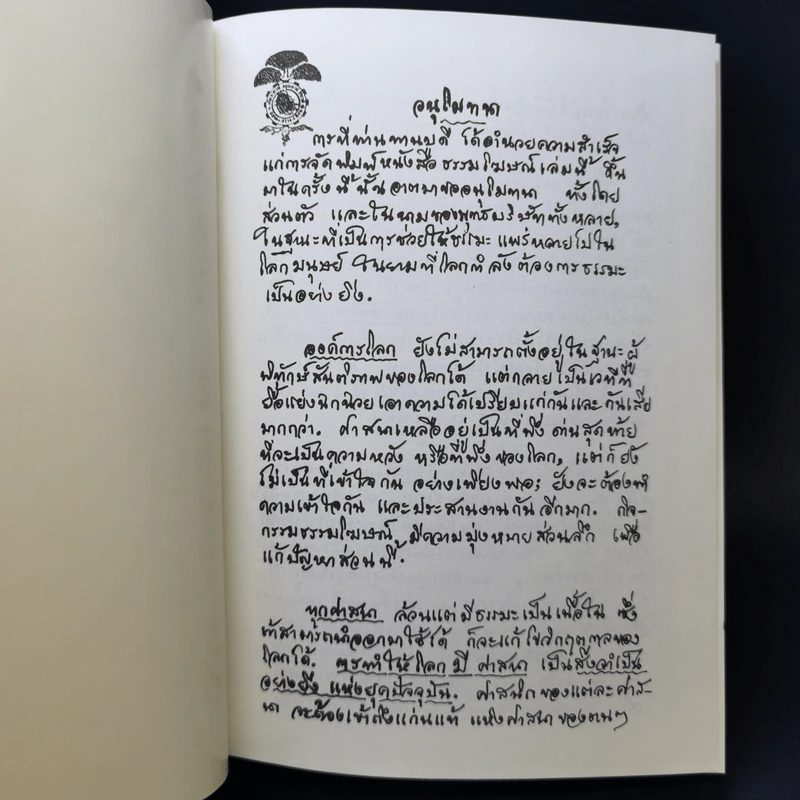 อนุโมทนา
การที่ท่านทานบดี ได้อำนวยความสำเร็จ
แก่การจัดพิมพ์หนังสือ ธรรมโฆษณ์ เล่มนี้ ขึ้น
มาในครั้งนี้ นั้น อาตมาขออนุโมทนา ทั้งโดย
ส่วนตัว และในนามของพุทธบริษัททั้งหลาย,
ในฐานะที่เป็นการช่วยให้ธรรมะ แพร่หลายไปใน
โลกมนุษย์ ในยามที่โลกกำลังต้องการธรรมะ
เป็นอย่างยิ่ง.
องค์การโลก ยังไม่สามารถตั้งอยู่ในฐานะผู้
พิทักษ์สันติภาพของโลกได้ แต่กลายเป็นเวทีที่
ยื้อแย่งฉกฉวยเอาความได้เปรียบแก่กันและกันเสีย
มากกว่า. ศาสนาเหลืออยู่เป็นที่พึ่ง ด่านสุดท้าย
ที่จะเป็นความหวัง หรือที่พึ่งของโลก, แต่ก็ยัง
ไม่เป็นที่เข้าใจกัน อย่างเพียงพอ; ยังจะต้องทำ
ความเข้าใจกัน และประสานงานกันอีกมาก. กิจ-
กรรมธรรมโฆษณ์ มีความมุ่งหมายส่วนลึก เพื่อ
แก้ปัญหาส่วนนี้.
ทุกศาสนา ล้วนแต่มีธรรมะเป็นเนื้อใน ซึ่ง
ถ้าสามารถนำออกมาใช้ได้ ก็จะแก้ไขวิกฤตกาลของ
โลกได้. การทำให้โลก มี ศาสนา เป็นสิ่งจำเป็น
อย่างยิ่ง แห่งยุคปัจจุบัน. ศาสนิกของแต่ละศาส-
นา จะต้องเข้าถึงแก่นแท้ แห่งศาสนาของตนๆ